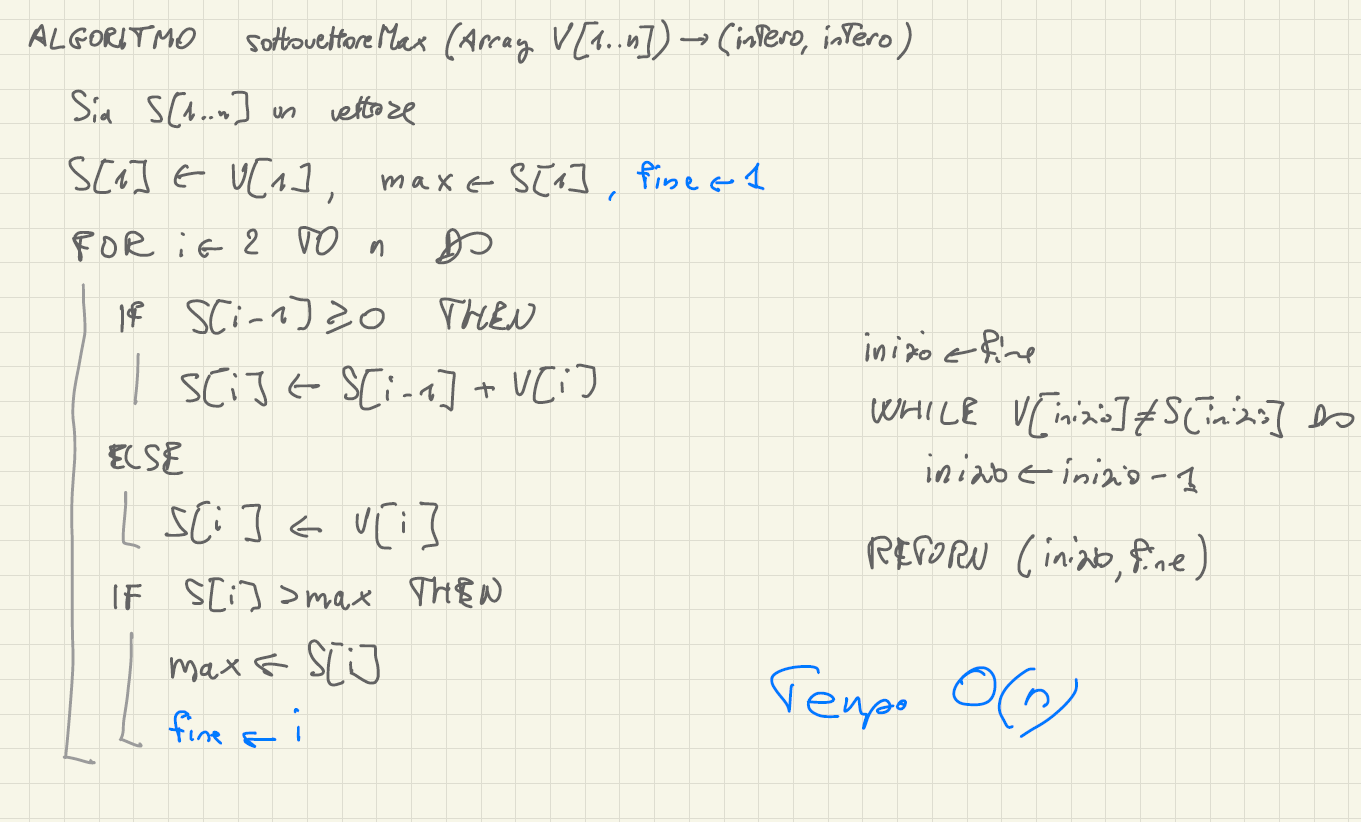 ALGORITMO sottovettoreMax (Array V[1..n]) → (intero, intero)
Sia S[1..n] un vettore
S[1] ← V[1], max ← S[1], fine ← 1
FOR i ← 2 TO n DO
IF S[i-1] ≥ 0 THEN
S[i] ← S[i-1] + V[i]
ELSE
S[i] ← V[i]
IF S[i] > max THEN
max ← S[i]
fine ← i
inizio ← fine
WHILE V[inizio] ≠ S[inizio] DO
inizio ← inizio - 1
RETURN (inizio, fine)
Tempo O(n)